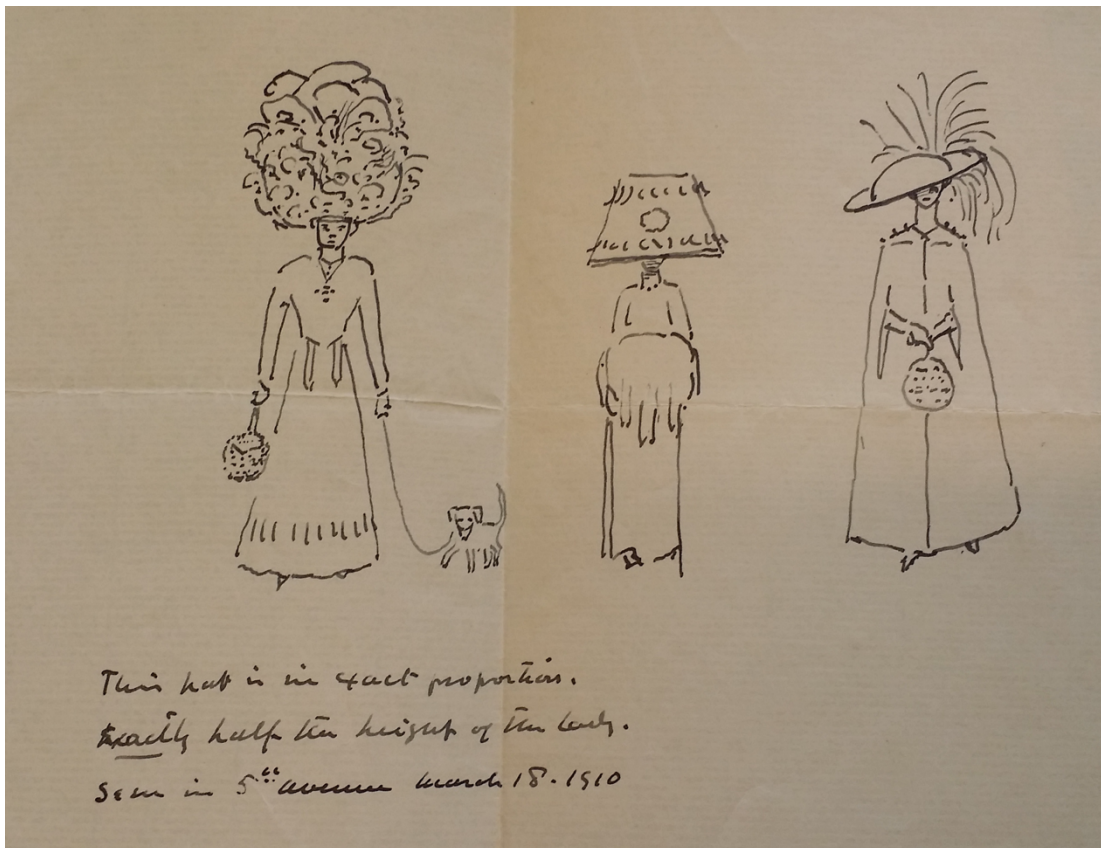 This hat is in exact proportion.
Exactly half the height of the lady.
Seen in 5th avenue March 18. 1910